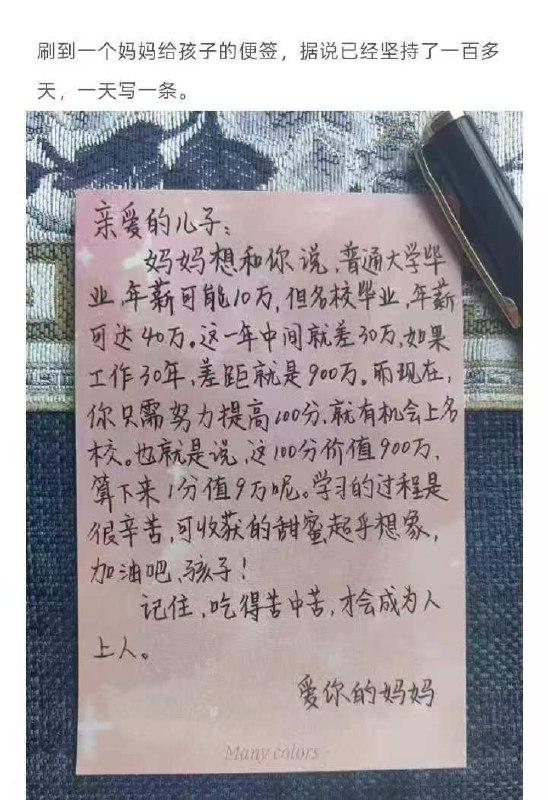 刷到一个妈妈给孩子的便签，据说已经坚持了一百多
天，一天写一条。
亲爱的儿子：
妈妈想和你说，普通大学毕
业，年薪可能10万，但名校毕业，年薪
可达40万。这一年中间就差30万，如果
工作30年，差距就是900万。而现在，
你只需努力提高100分，就有机会上名
校。也就是说，这100分价值900万，
算下来1分值9万呢。学习的过程是
很辛苦，可收获的甜蜜超乎想象，
加油吧，孩子！
记住，吃得苦中苦，才会成为人
上人。
爱你的妈妈
Many colors